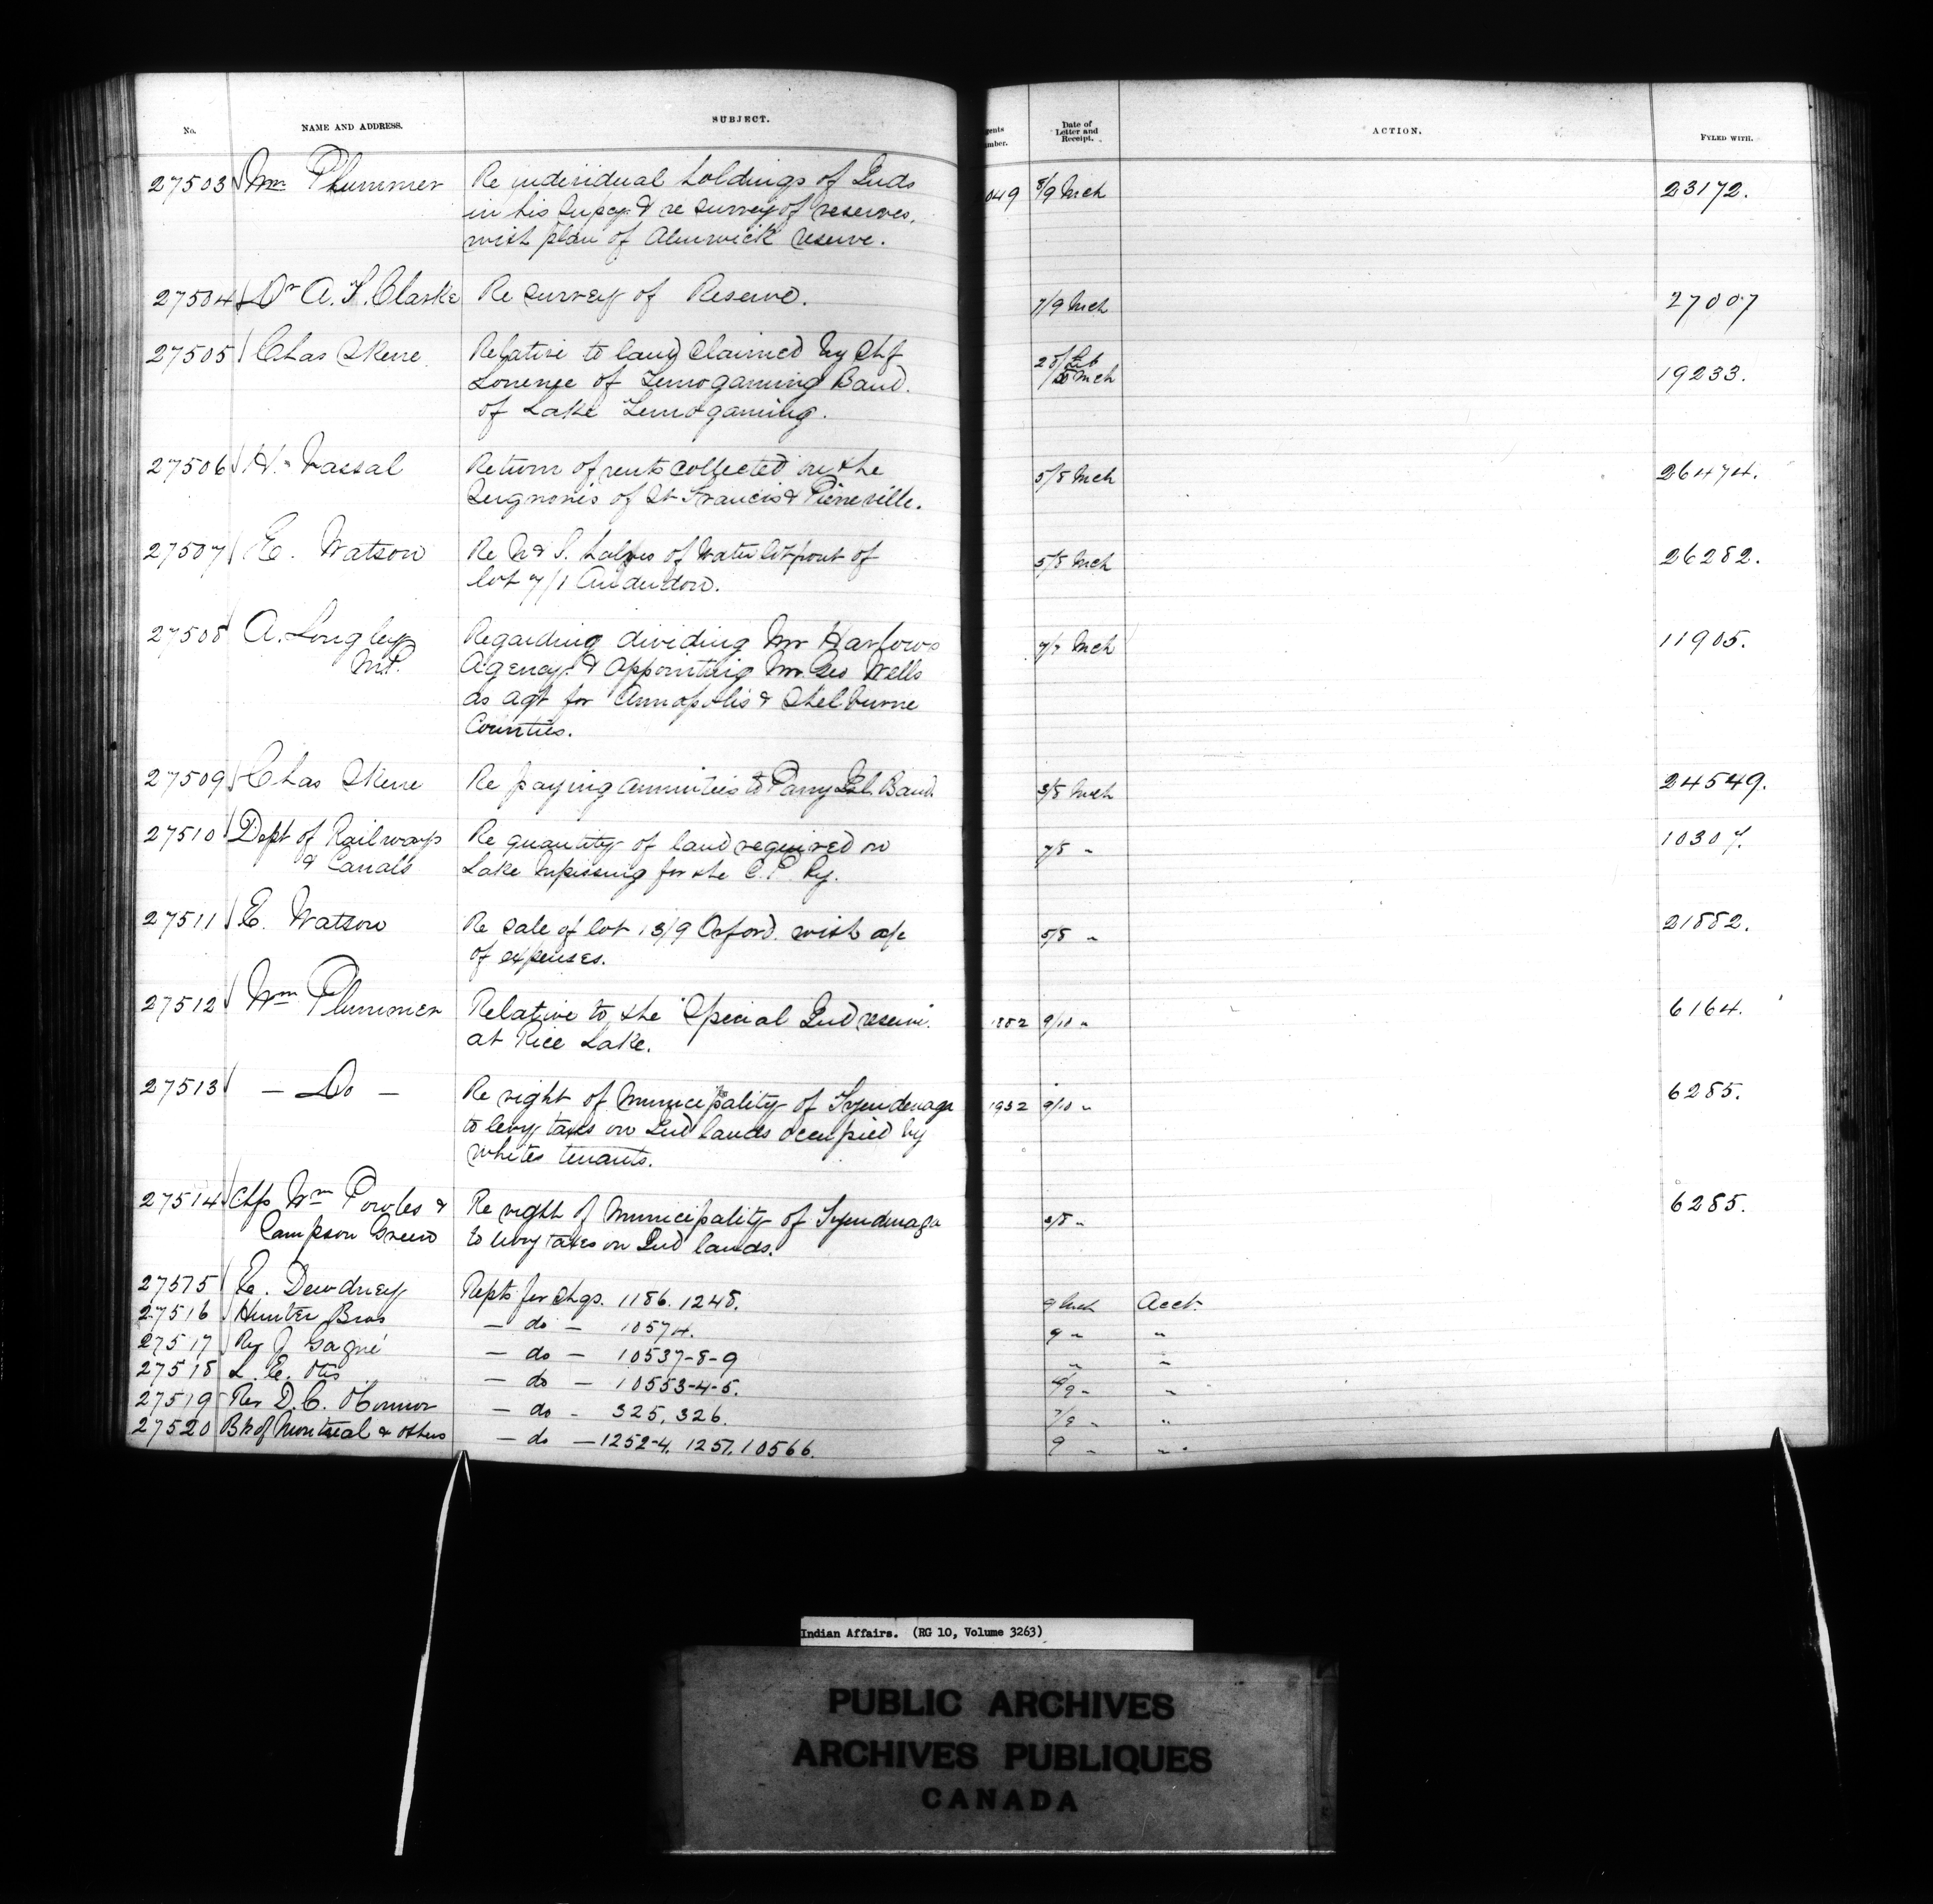 No. NAME AND ADDRESS. SUBJECT. gents umber. Date of Letter and Receipt. ACTION. FYLED WITH.
27503 Wm Plummer Re individual holdings of Inds 049 8/9 Mch 23172.
in his Supcy. & re survey of reserves,
with plan of Alnwick reserve.
27504 Dr A. S. Clarke Re survey of Reserve. 7/9 Mch 27007
27505 Chas Skene Relative to land claimed by Chf 28/Feb 19233.
of Temogaming Band. Mch
of Lake Temogaming.
27506 H. Vassal Return of rents collected on the 5/8 Mch 26474.
Seignories of St Francis & Pierreville.
27507 E. Watson Re N & S. halves of Water lot front of 5/8 Mch 26282.
lot 7/1 Anderdon.
27508 A. Longley Regarding dividing Mr Harlow's 7/7 Mch 11905.
M.P. Agency & appointing Mr. Geo Wells
as agt for Annapolis & Shelburne
Counties.
27509 Chas Skene Re paying annuities to Parry Isl. Band. 3/8 Mch 24549.
27510 Dept of Railways Re quantity of land required on 7/8 " 10307.
& Canals Lake Nipissing for the C. P. Ry.
27511 E. Watson Re sale of lot 13/9 Orford. with a/c 5/8 " 21882.
of expenses.
27512 Wm Plummer Relative to the Special Ind reserve. 9/10 " 6164.
at Rice Lake.
27513 — Do — Re right of Municipality of Tyendenaga 1932 9/10 " 6285.
to levy taxes on Ind lands occupied by
whites tenants.
27514 Chfs Wm Powles & Re right of Municipality of Tyendenaga /8 " 6285.
Sampson Green to levy taxes on Ind lands.
27515 E. Dewdney Repts for Chqs. 1186. 1248. 9 Mch Acct.
27516 Hunter Bros — do — 10574. 9 " "
27517 Rev J Gagné — do — 10537-8-9 " "
27518 L. E. Otis — do — 10553-4-5. /9 " "
27519 Rev D. C. O'Connor — do - 325, 326. 7/9 " "
27520 Bk of Montreal & others — do — 1252-4, 1257, 10566. 9 " "
Indian Affairs. (RG 10, Volume 3263)
PUBLIC ARCHIVES
ARCHIVES PUBLIQUES
CANADA